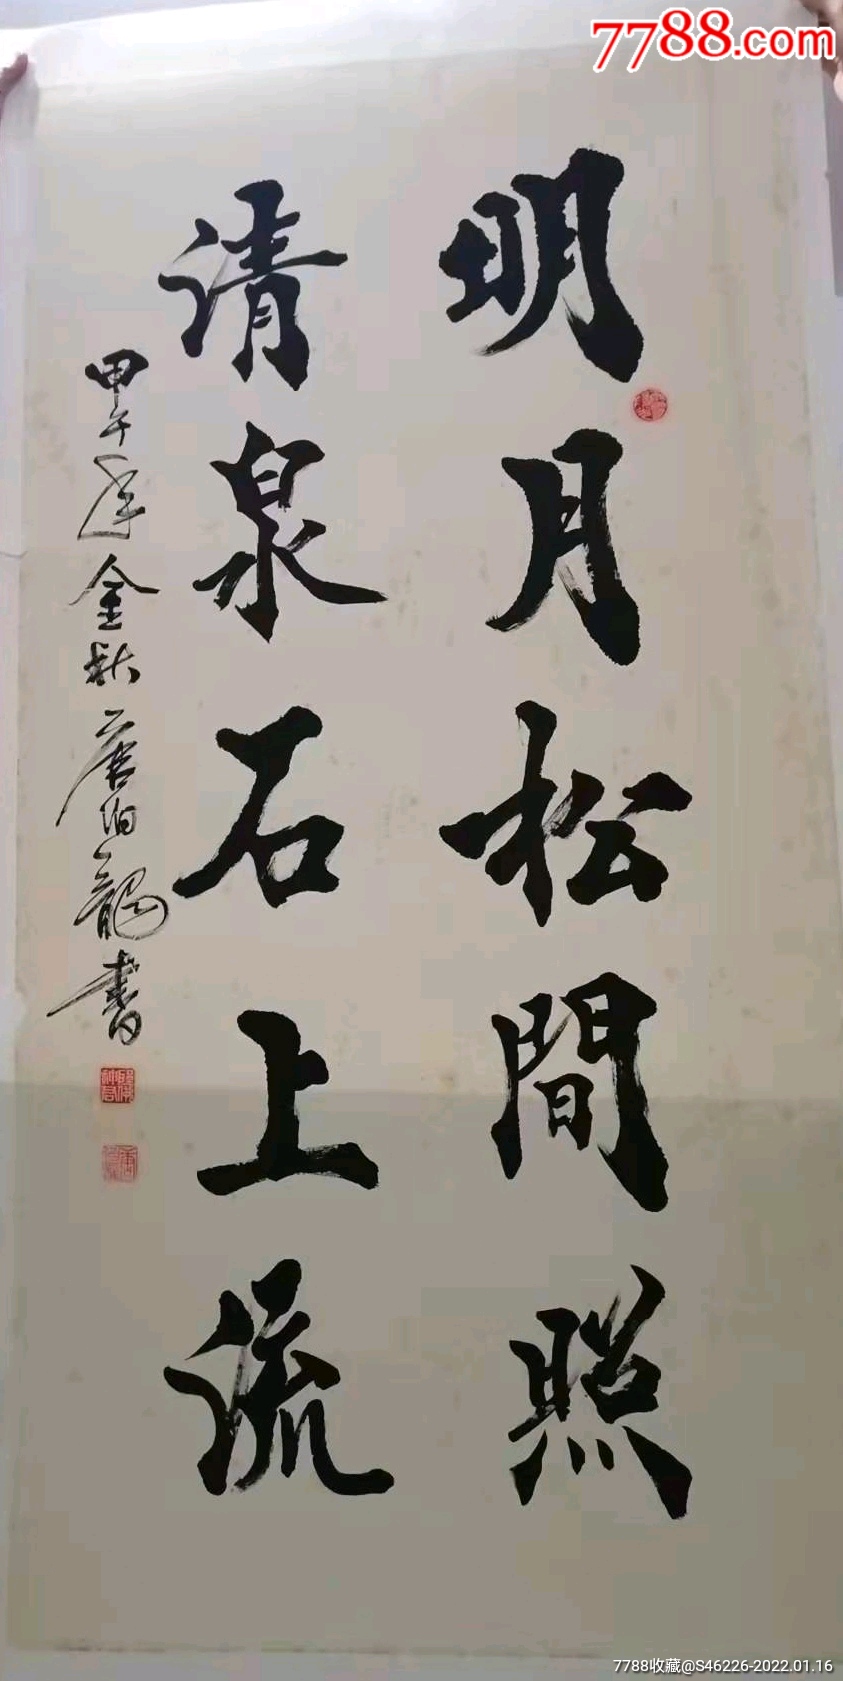 7788.com
明月松間照
清泉石上流
甲午年金秋唐伯龍書
7788收藏@S46226-2022.01.16